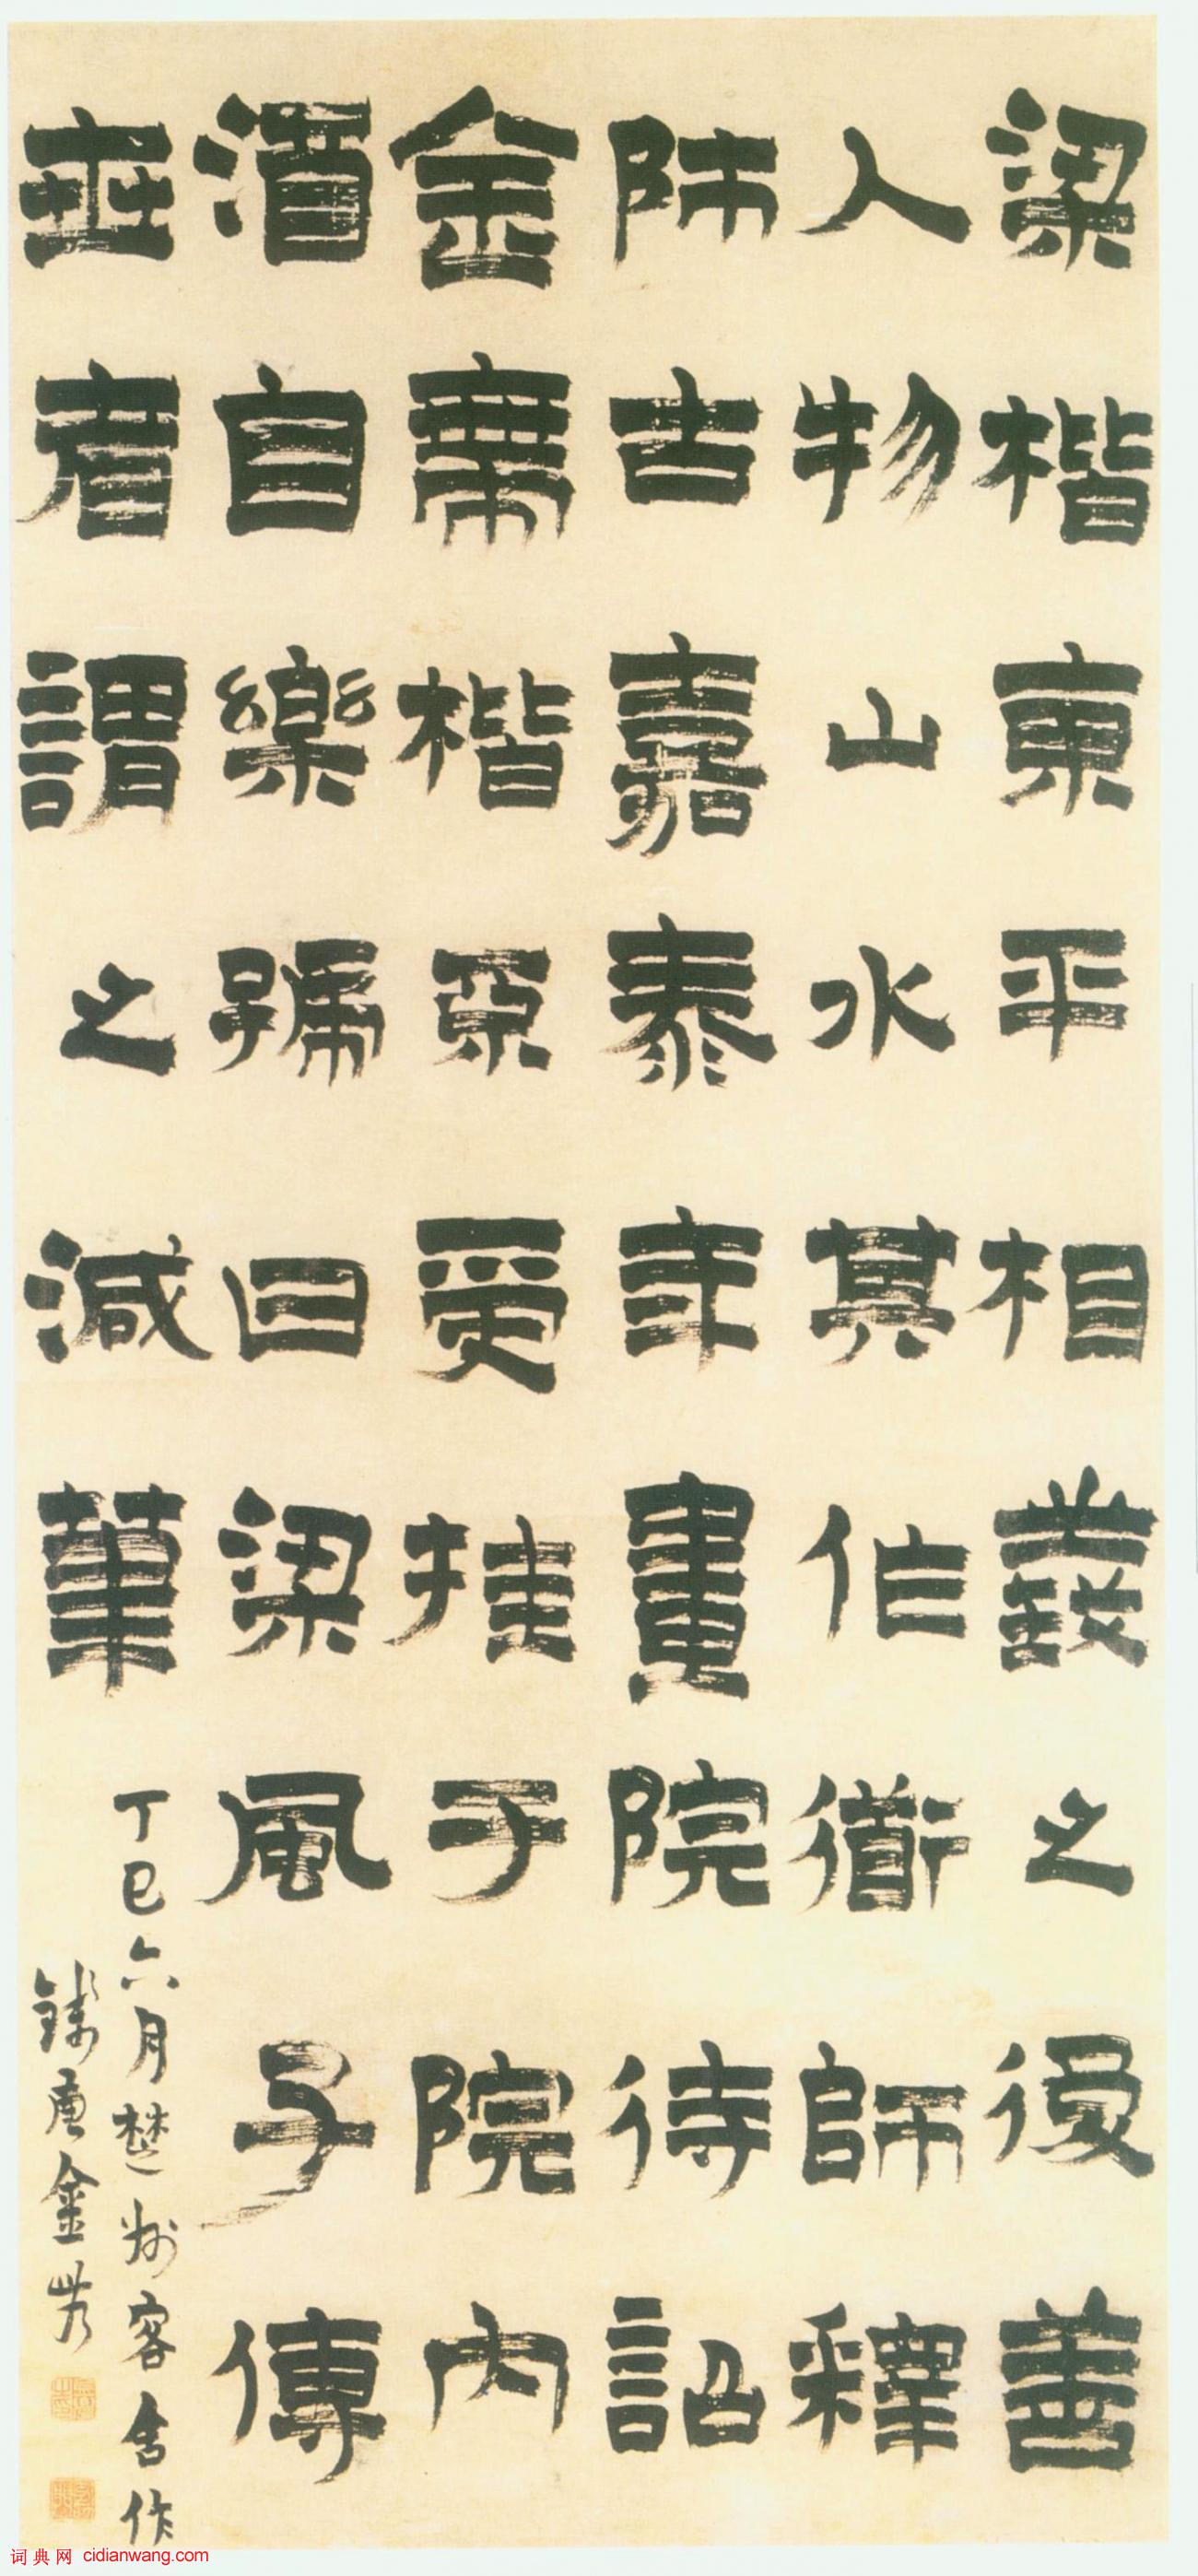 梁楷東平相義之後善
人物山水其作衜師釋
師古嘉泰年畫院待詔
金帶楷不受挂于院內
酒自樂號曰梁風子傳
世者謂之減筆
丁巳六月楚州客舍作
錢唐金農
词典网 cidianwang.com